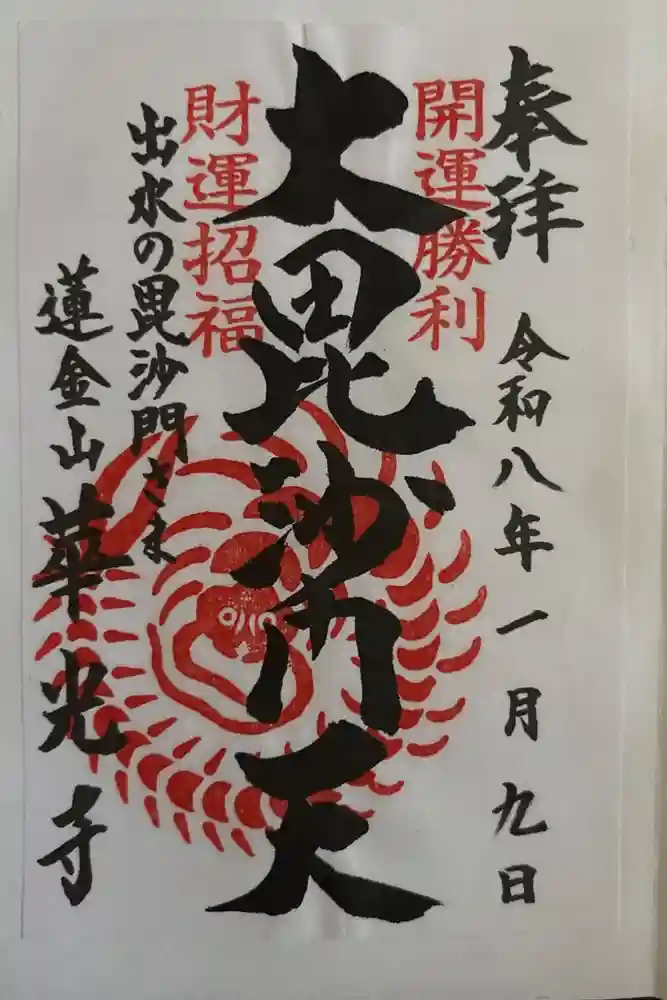 奉拝
令和八年一月九日
開運勝利
大毘沙門天
財運招福
出水の毘沙門さま
蓮金山華光寺